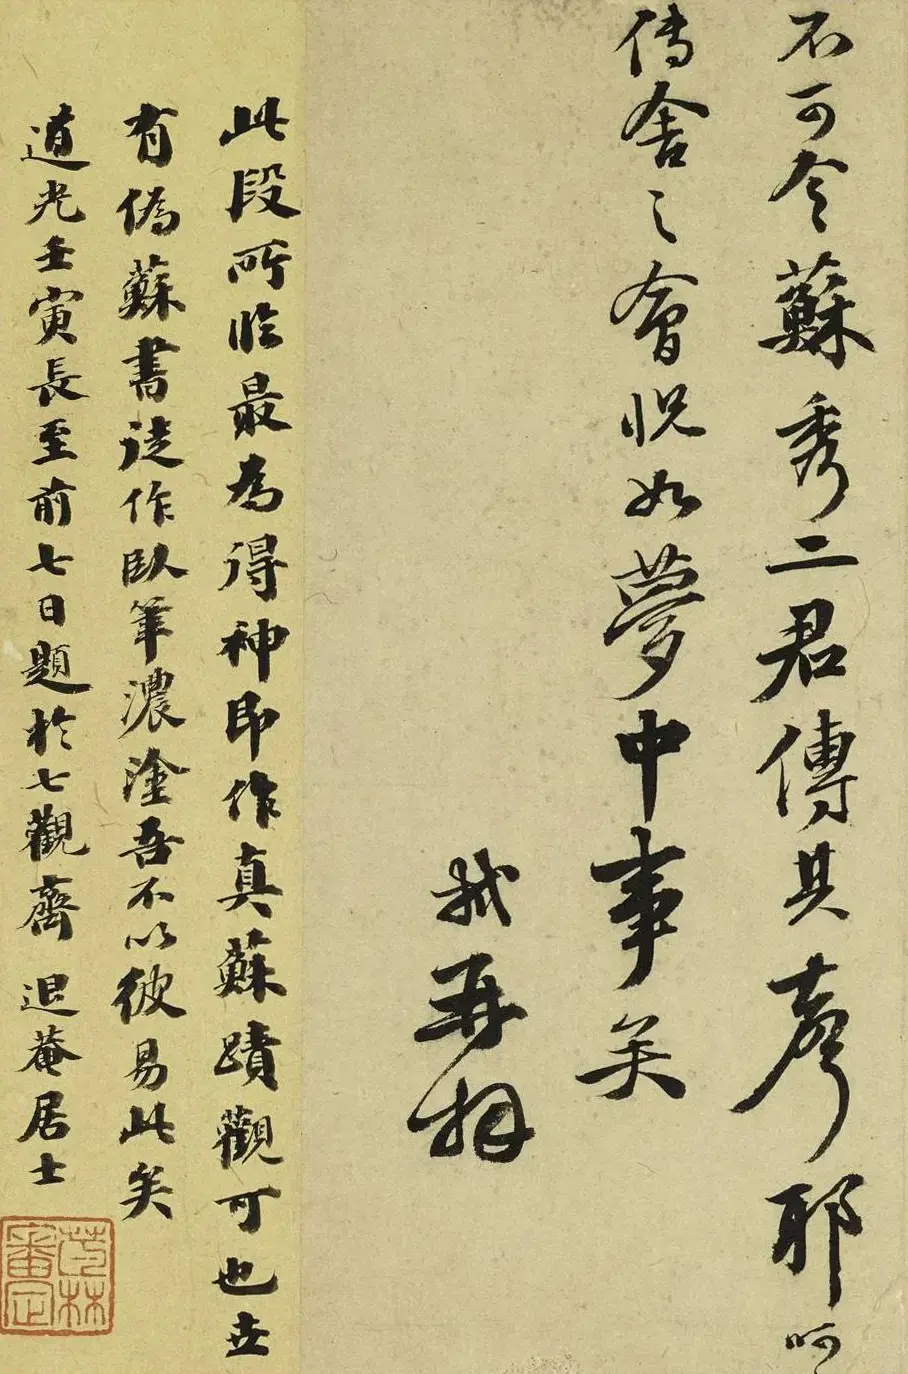 不可令蘇秀二君傳其聲耶呵
傳舍之會怳如夢中事矣
軾再拜
此段所臨最為得神即作真蘇蹟觀可也世
有偽蘇書徒作臥筆濃塗吾不以彼易此矣
道光壬寅長至前七日題於七觀齋 退菴居士
茞林
審定